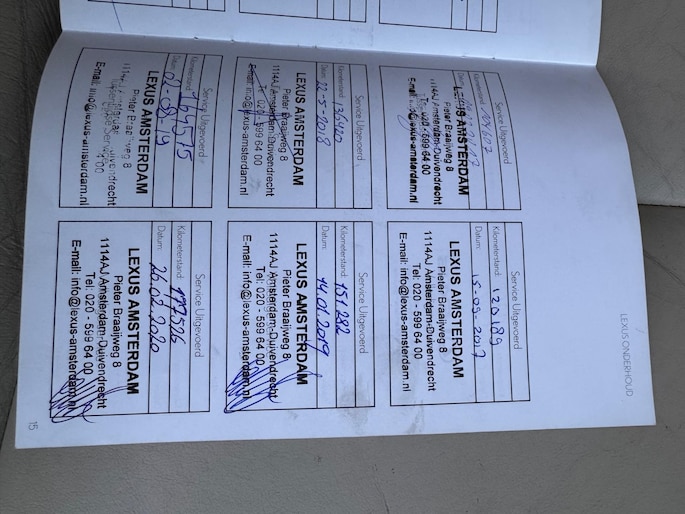 LEXUS ONDERHOUD
Service Uitgevoerd
Kilometerstand:
Datum:
LEXUS AMSTERDAM
Pieter Braaijweg 8
1114AJ Amsterdam-Duivendrecht
Tel: 020 - 599 64 00
E-mail: info@lexus-amsterdam.nl
Service Uitgevoerd
Kilometerstand: 120189
Datum: 15-09-2017
LEXUS AMSTERDAM
Pieter Braaijweg 8
1114AJ Amsterdam-Duivendrecht
Tel: 020 - 599 64 00
E-mail: info@lexus-amsterdam.nl
Service Uitgevoerd
Kilometerstand:
Datum: 22-5-2018
LEXUS AMSTERDAM
Pieter Braaijweg 8
1114AJ Amsterdam-Duivendrecht
Tel: 020 - 599 64 00
E-mail: info@lexus-amsterdam.nl
Service Uitgevoerd
Kilometerstand: 151282
Datum: 14.01.2019
LEXUS AMSTERDAM
Pieter Braaijweg 8
1114AJ Amsterdam-Duivendrecht
Tel: 020 - 599 64 00
E-mail: info@lexus-amsterdam.nl
Service Uitgevoerd
Kilometerstand: 169515
Datum:
LEXUS AMSTERDAM
Pieter Braaijweg 8
E-mail: info@lexus-amsterdam.nl
Service Uitgevoerd
Kilometerstand: 177526
Datum: 26.02.2020
LEXUS AMSTERDAM
Pieter Braaijweg 8
1114AJ Amsterdam-Duivendrecht
Tel: 020 - 599 64 00
E-mail: info@lexus-amsterdam.nl
15